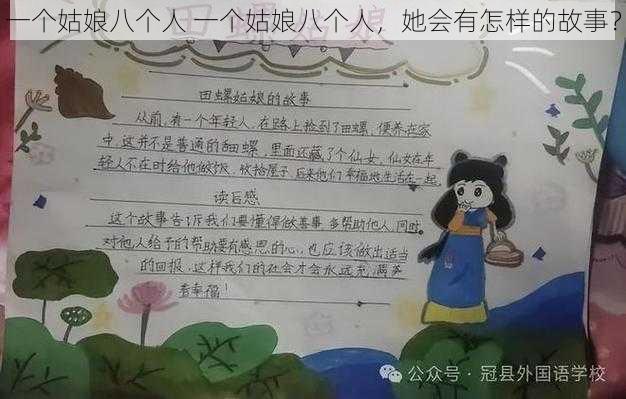 一个姑娘八个人 一个姑娘八个人，她会有怎样的故事？
田螺姑娘
田螺姑娘的故事
从前，有一个年轻人，在路上捡到了田螺，便养在家
中，这并不是普通的田螺，里面还藏了个仙女，仙女在年
轻人不在时给他做饭，收拾屋子，后来他们幸福地生活在一起
读后感
这个故事告诉我们要懂得做善事，多帮助他人，同时
对他人给予的帮助要有感恩的心，也应该做出适当
的回报，这样我们的社会才会永远充满美
幸福！
公众号·冠县外国语学校